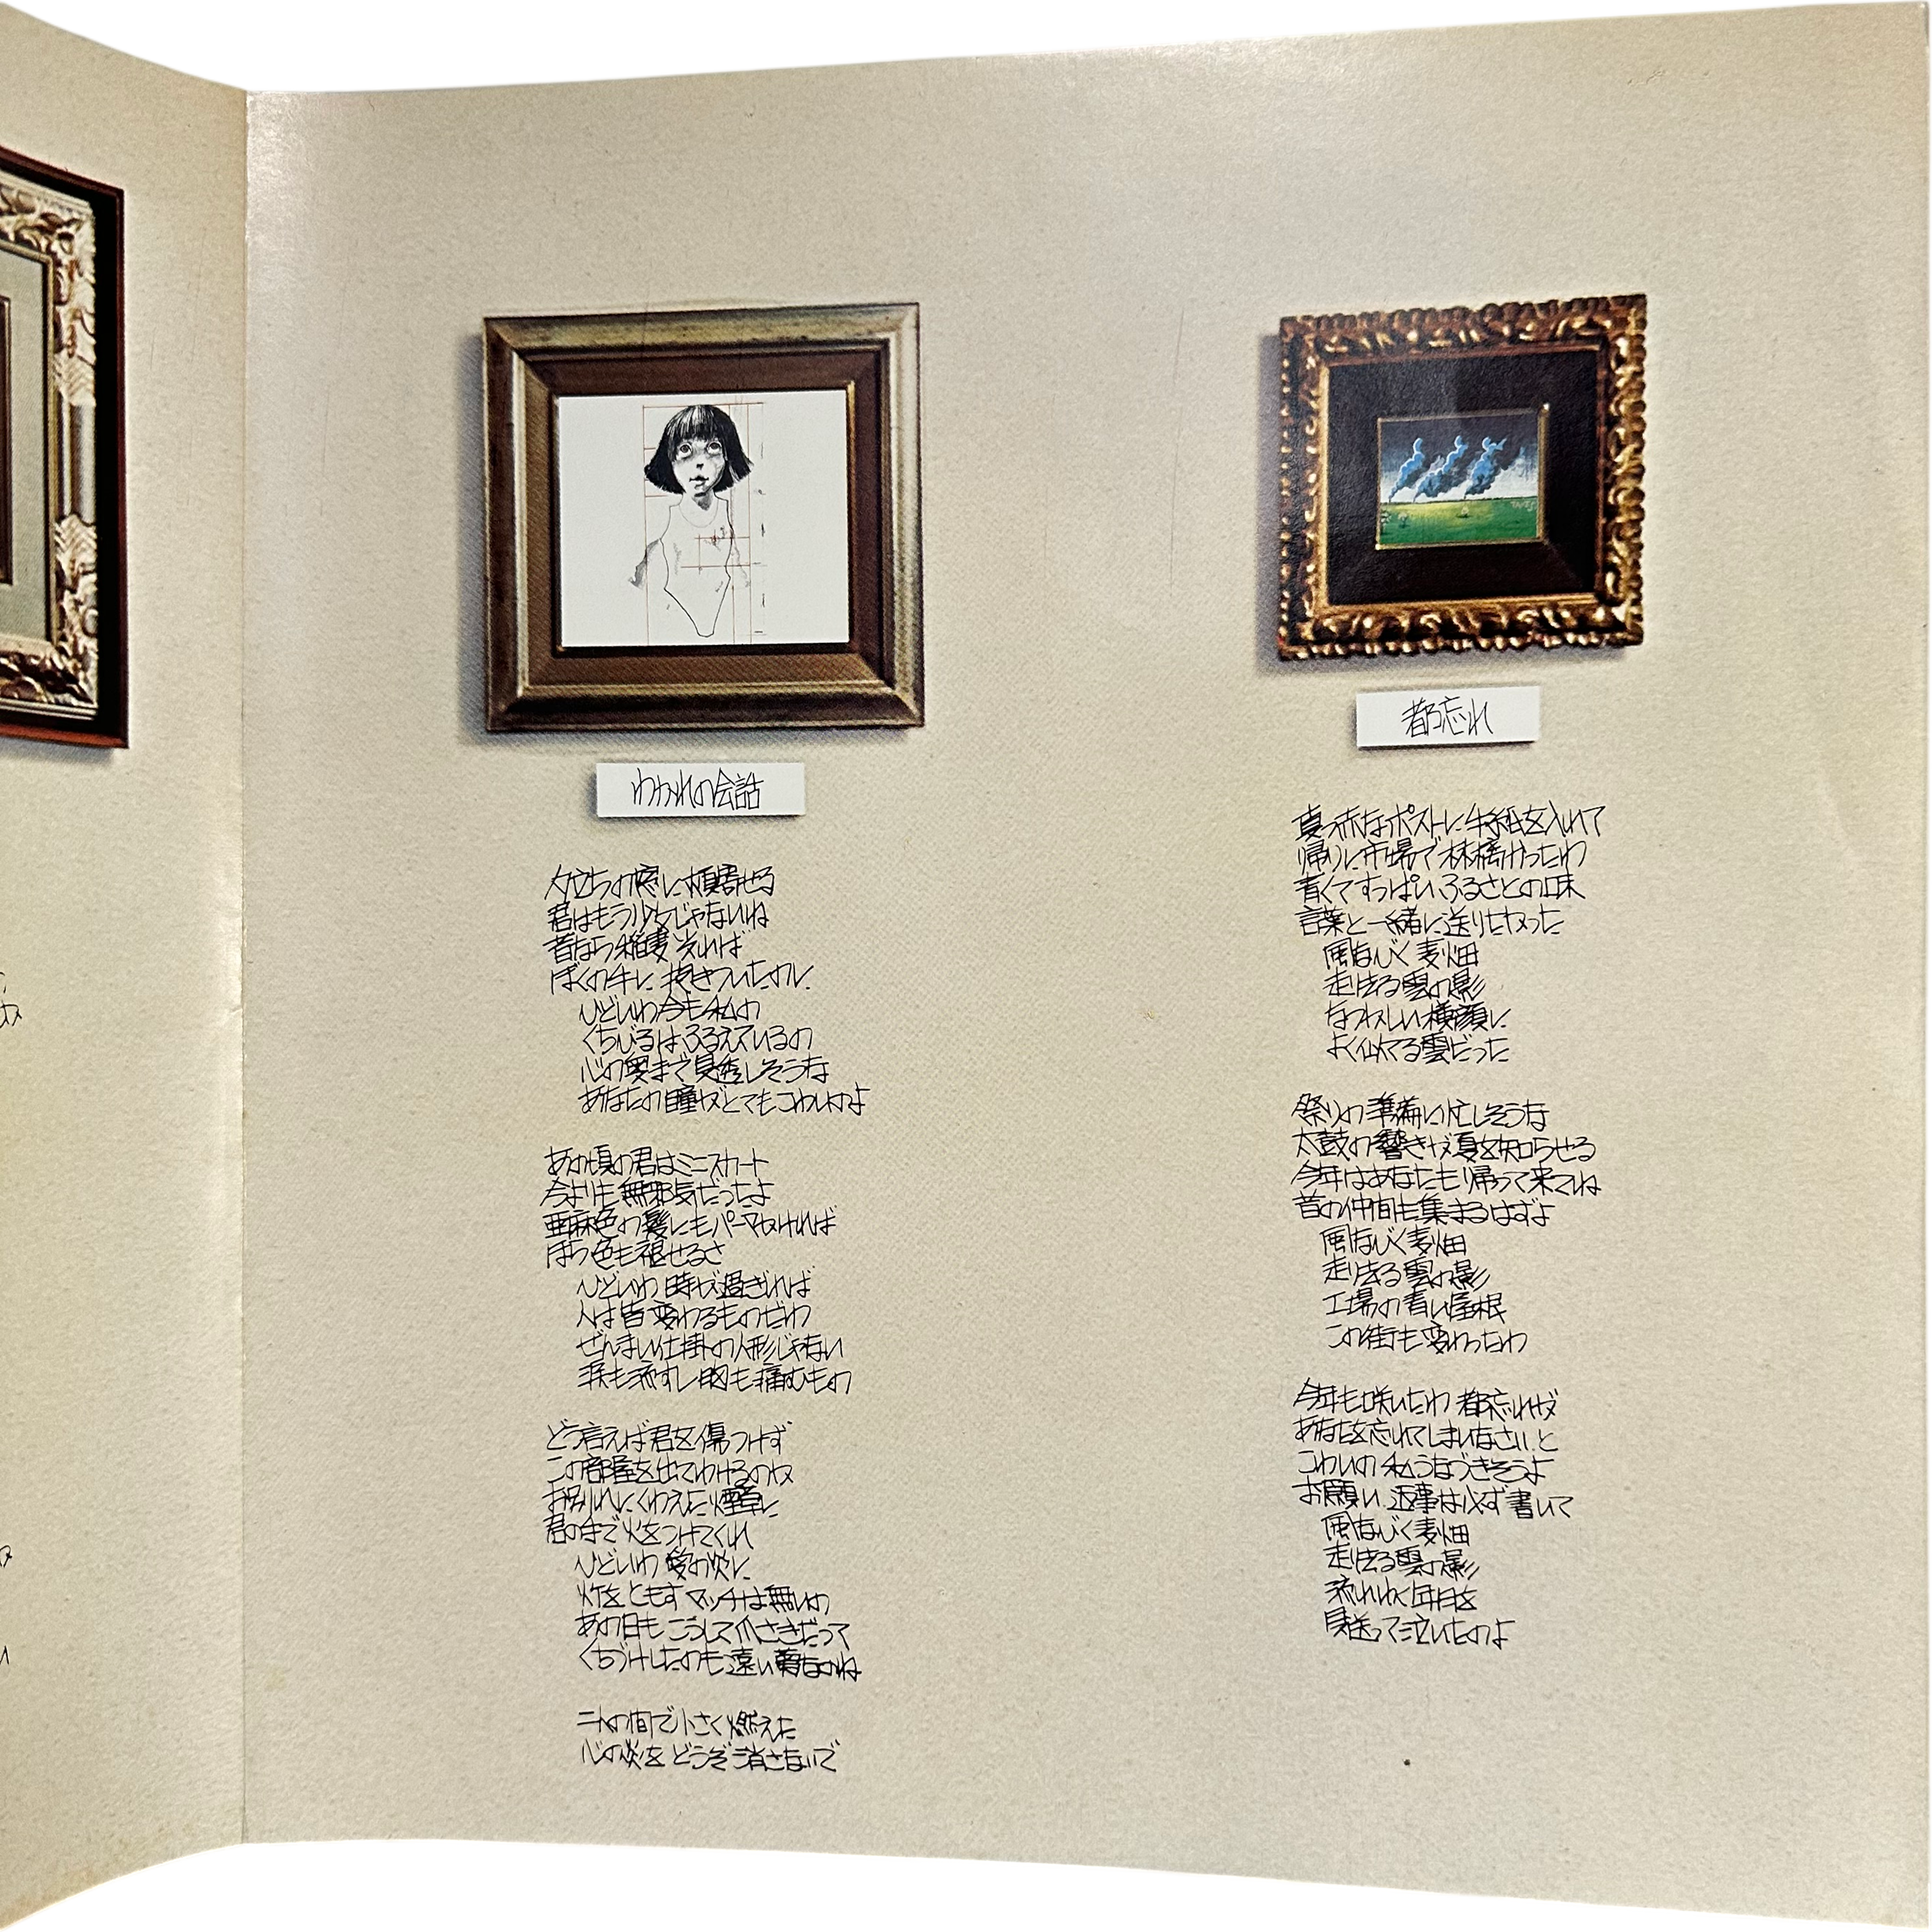 わかれの会話
夕立ちの窓に頬寄せる
君はもう少女じゃないね
昔なら稲妻光れば
ぼくの手に 抱きついたのに
ひどいわ今も私の
くちびるはふるえているの
心の奥まで見透しそうな
あなたの瞳がとてもこわいのよ
あの頃の君はミニスカート
今よりも無邪気だったよ
亜麻色の髪にもパーマかければ
ほら色も褪せるさ
ひどいわ 時が過ぎれば
人は皆変わるものだわ
ぜんまい仕掛の人形じゃない
涙も流すし胸も痛むもの
どう言えば君を傷つけず
この部屋を出てゆけるのか
お別れにくわえた煙草に
君の手で火をつけてくれ
ひどいわ 愛の炎に
灯をともすマッチは無いの
あの日もこうして爪さきだって
くちづけしたのも遠い夢なのね
二人の間で小さく燃えた
心の炎を どうぞ消さないで
都忘れ
真っ赤なポストに手紙を入れて
帰りに市場で林檎買ったわ
青くてすっぱいふるさとの味
言葉と一緒に送りたかった
風なびく麦畑
走り去る雲の影
なつかしい横顔に
よく似てる雲だった
祭りの準備に忙しそうな
太鼓の響きが夏を知らせる
今年はあなたも帰って来てね
昔の仲間も集まるはずよ
風なびく麦畑
走り去る雲の影
工場の青い屋根
この街も変わったわ
今年も咲いたわ 都忘れが
あなたを忘れてしまいなさいと
こわいの 私うなづきそうよ
お願い 返事は必ず書いて
風なびく麦畑
走り去る雲の影
流れゆく年月を
見送って泣いたのよ